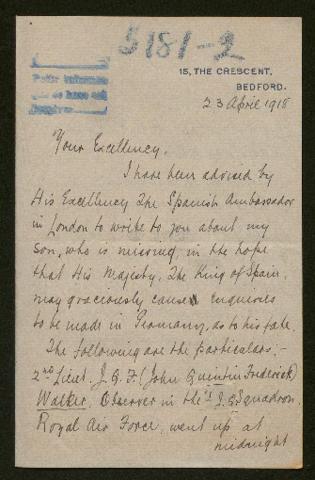 5181-2
15, THE CRESCENT,
BEDFORD.
23 April 1918
Your Excellency.
I have been advised by
His Excellency The Spanish Ambassador
in London to write to you about my
son, who is missing, in the hope
that His Majesty, The King of Spain,
may graciously cause enquiries
to be made in Germany, as to his fate.
The following are the particulars:-
2nd Lieut. J. Q. F. (John Quintin Frederick)
Walker, Observer in the Squadron
Royal Air Force, went up at
midnight